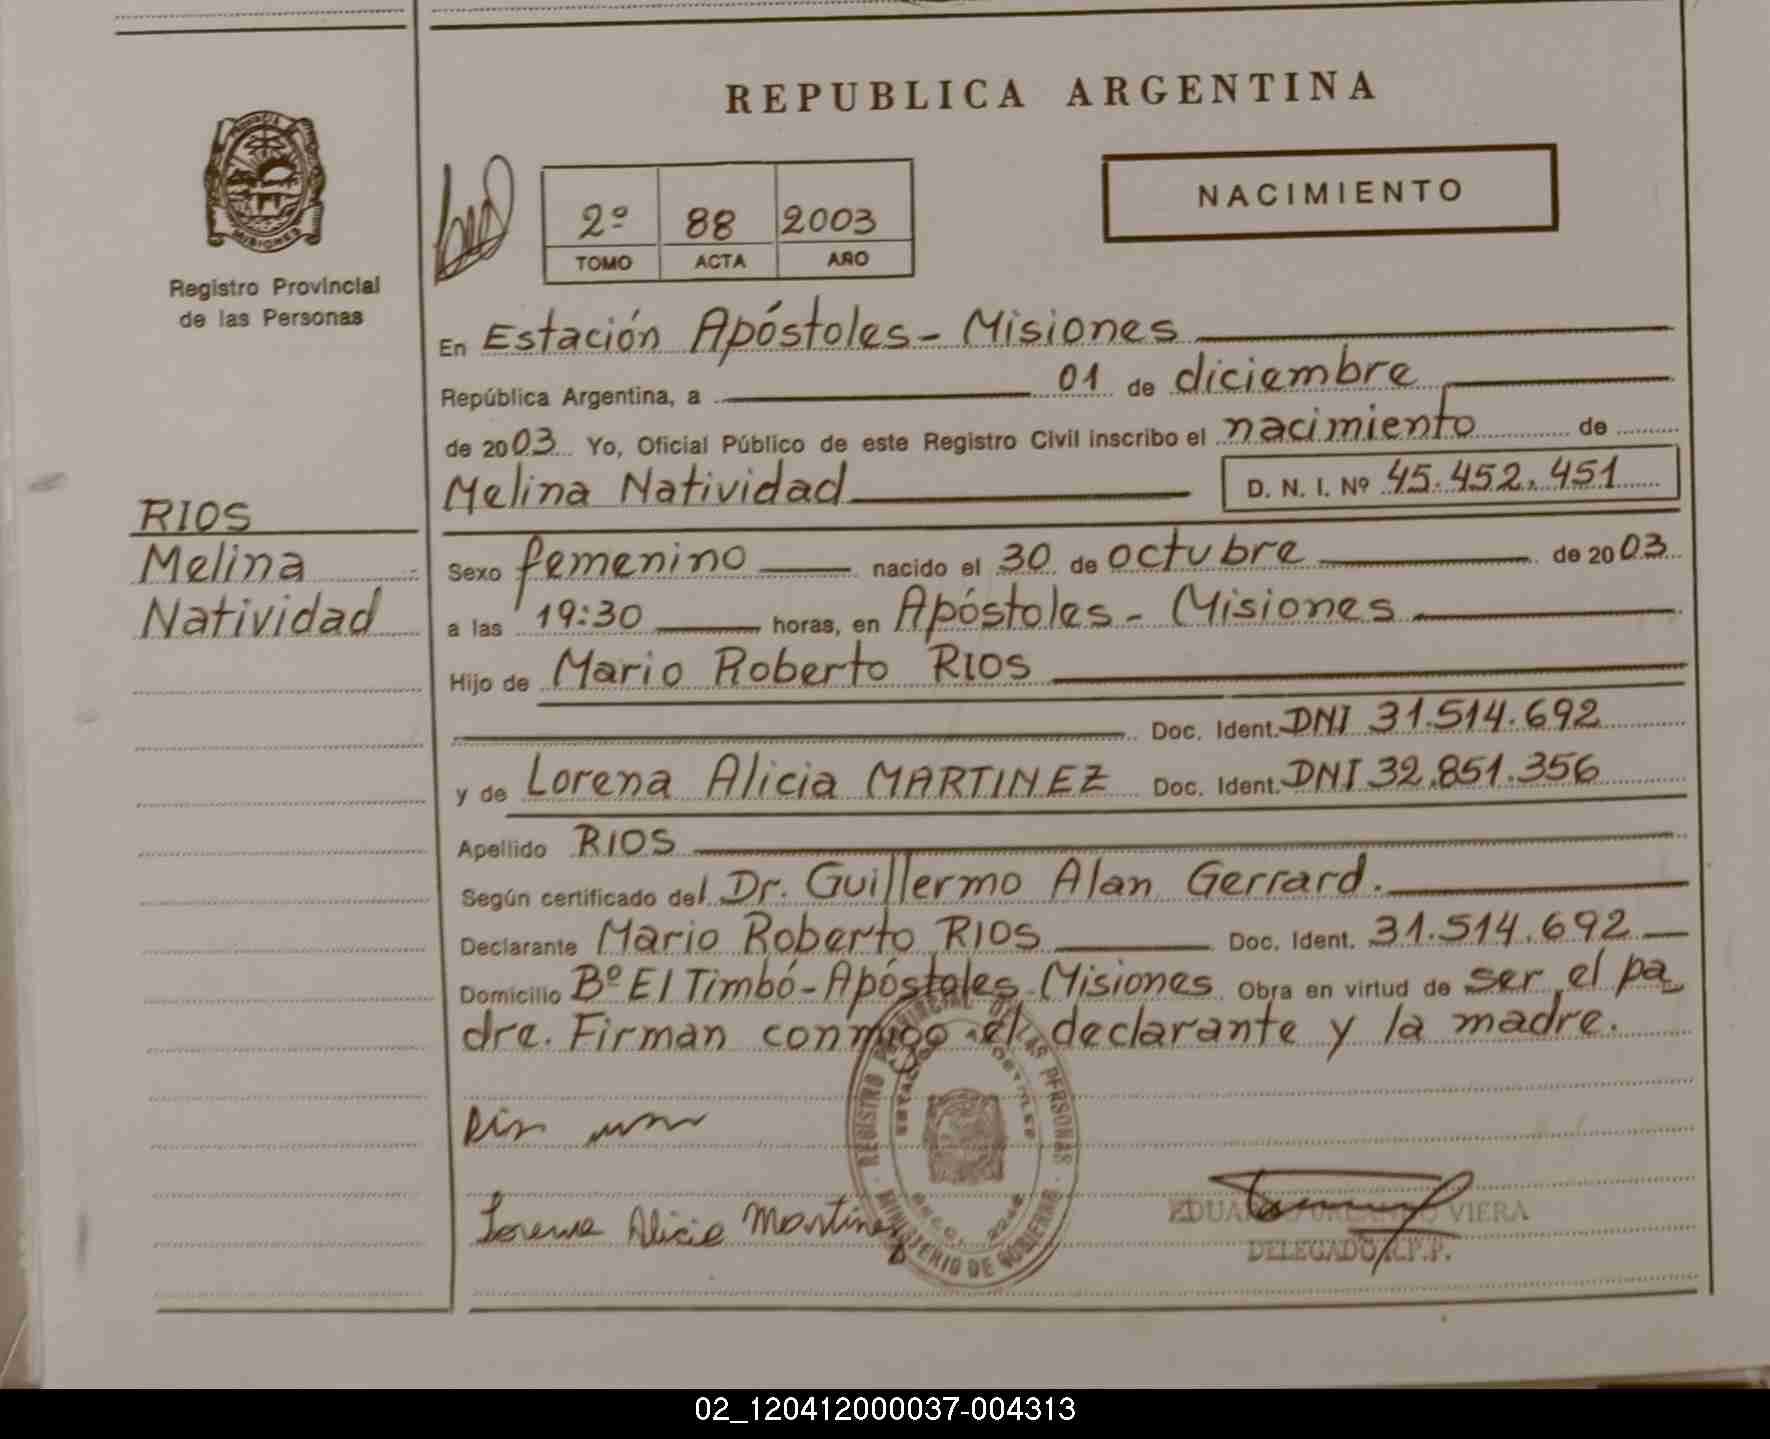 REPUBLICA ARGENTINA
NACIMIENTO
2º 88 2003
TOMO ACTA AÑO
Registro Provincial
de las Personas
En Estación Apóstoles - Misiones
República Argentina, a 01 de diciembre
de 2003 Yo, Oficial Público de este Registro Civil inscribo el nacimiento de
Melina Natividad D. N. I. Nº 45.452.451
RIOS
Melina
Natividad
Sexo femenino nacido el 30 de octubre de 2003
a las 19:30 horas, en Apóstoles - Misiones
Hijo de Mario Roberto RIOS
Doc. Ident. DNI 31.514.692
y de Lorena Alicia MARTINEZ Doc. Ident. DNI 32.851.356
Apellido RIOS
Según certificado del Dr. Guillermo Alan Gerrard.
Declarante Mario Roberto RIOS Doc. Ident. 31.514.692
Domicilio Bº El Timbó - Apóstoles - Misiones Obra en virtud de ser el pa
dre. Firman conmigo el declarante y la madre.
REGISTRO PROVINCIAL DE LAS PERSONAS
MINISTERIO DE GOBIERNO
Lorena Alicia Martinez
EDUARDO ORLANDO VIERA
DELEGADO R.P.P.
02_120412000037-004313